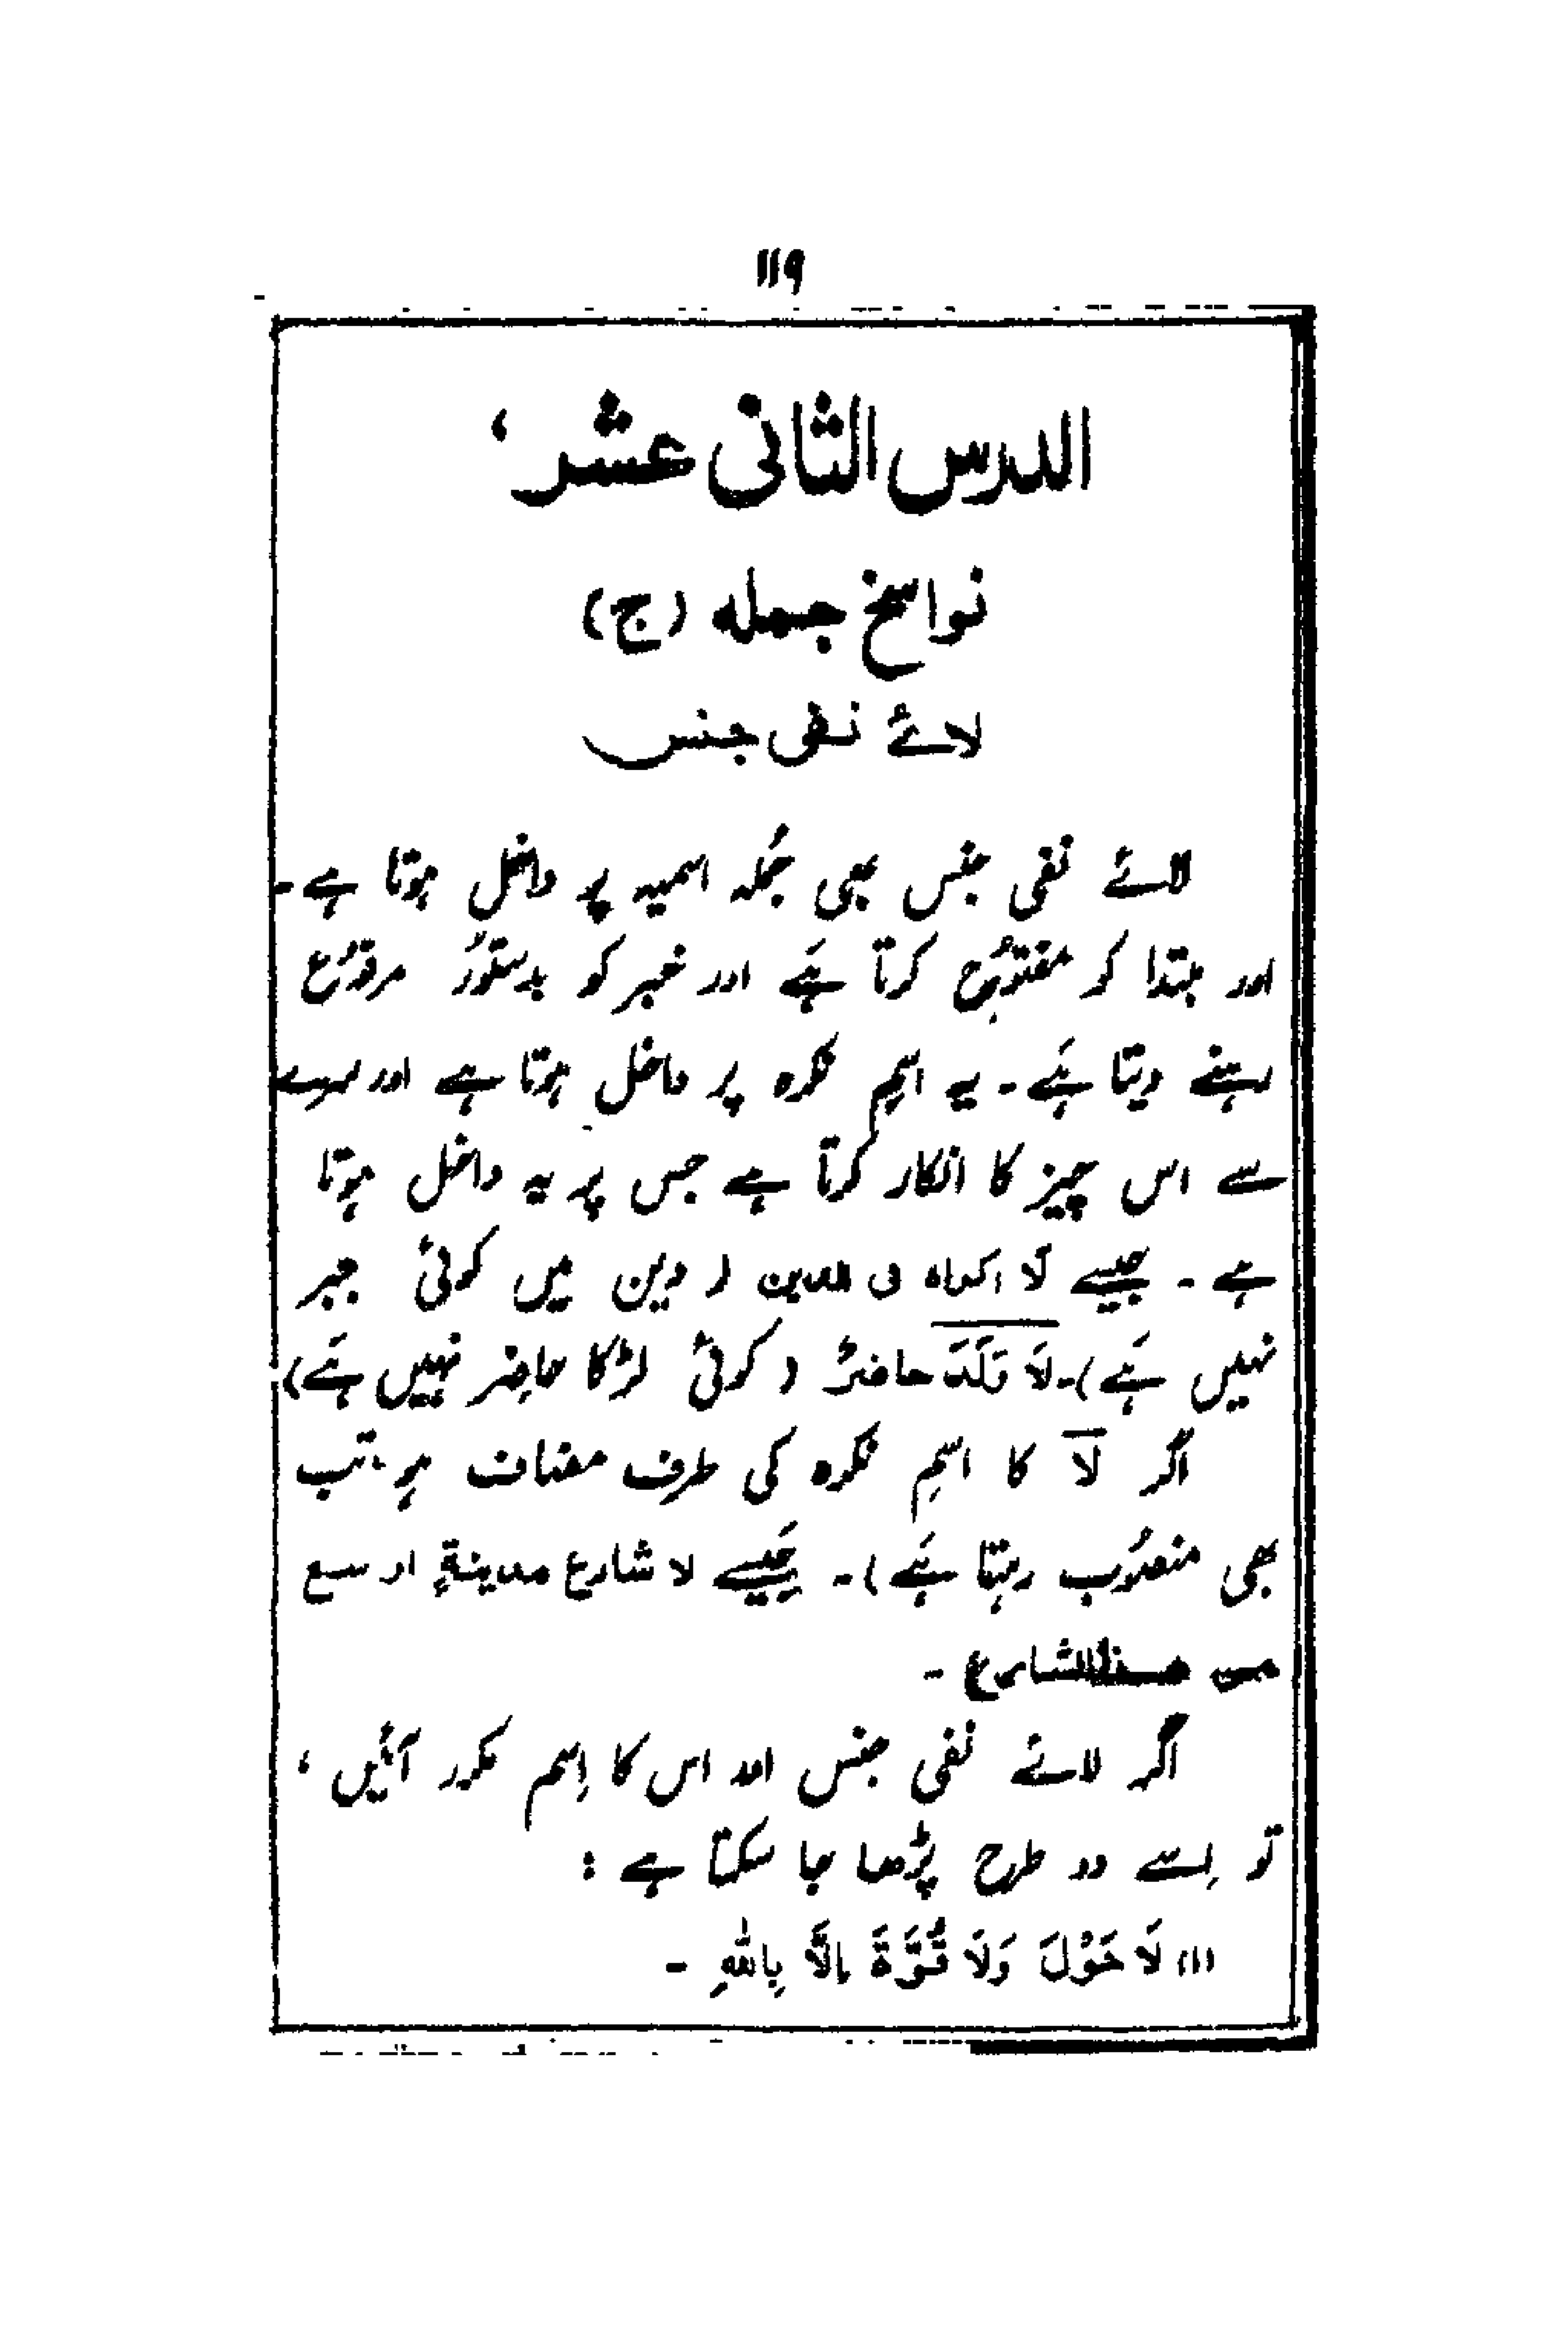 ۱۱۹
الدرس الثانی عشر،
نواسخ جمله (ج)
لائے نفی جنس
لائے نفی جنس بھی جُملہ اسمیہ پر داخل ہوتا ہے۔
اور مبتدا کو مفتوُح کرتا ہَے اور خبر کو بدستوُر مرفوُع
رہنے دیتا ہَے۔ یہ اسِم نکرہ پر داخل ہوتا ہے اور سرے
سے اس چیز کا انکار کرتا ہے جس پر یہ داخل ہوتا
ہے۔ جیسے لَا اکراہ فی الدین ( دین میں کوئی جبر
نہیں ہَے)۔ لَا وَلَدَ حاضرٌ ( کوئی لڑکا حاضِر نہیں ہَے)
اگر لَا کا اسِم نکرہ کی طرف مضاف ہو۔ تب
بھی منصوُب رہتا ہَے)۔ جَیسے لا شارع مدینةٍ اوسع
من هذا الشارع ۔
اگر لائے نفی جنس اور اس کا اِسم مکرر آئیں،
تو اِسے دو طرح پڑھا جا سکتا ہے :
(۱) لَا حَوْلَ وَلَا قُوَّةَ اِلَّا بِاللّٰهِ ۔